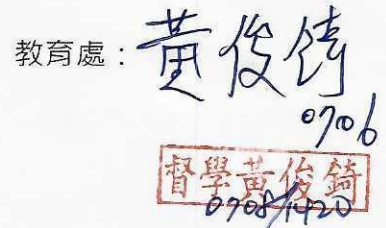 教育處：黃俊錡
0706
督學黃俊錡
0708/1420